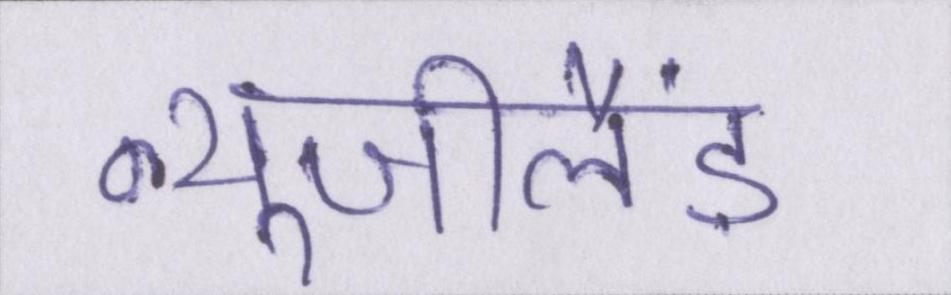 न्यूजीलैंड